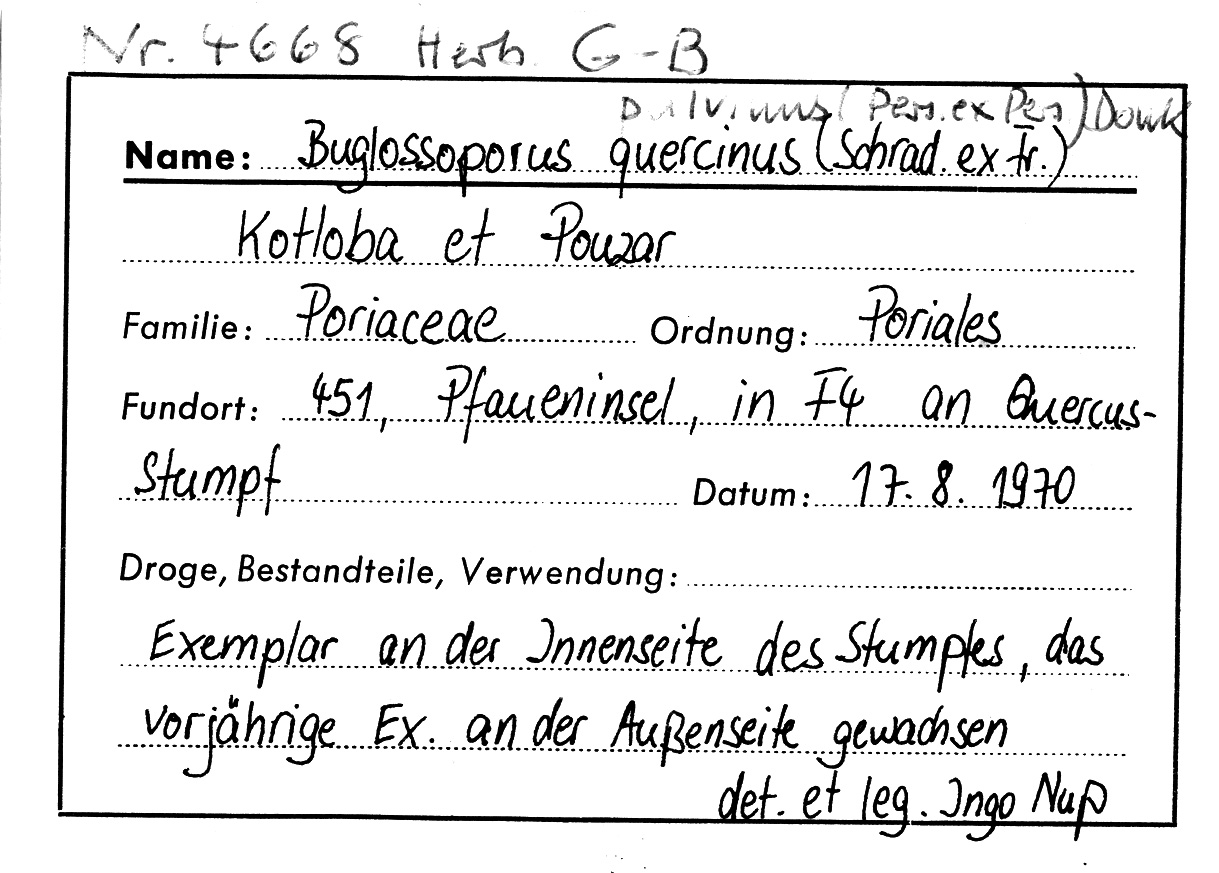 Nr. 4668 Herb. G-B
pulvinus (Pers. ex Pers) Donk
Name: Buglossoporus quercinus (Schrad. ex Fr.)
Kotloba et Pouzar
Familie: Poriaceae Ordnung: Poriales
Fundort: 451, Pfaueninsel, in F4 an Quercus-
Stumpf Datum: 17. 8. 1970
Droge, Bestandteile, Verwendung:
Exemplar an der Innenseite des Stumpfes, das
vorjährige Ex. an der Außenseite gewachsen
det. et leg. Ingo Nuß